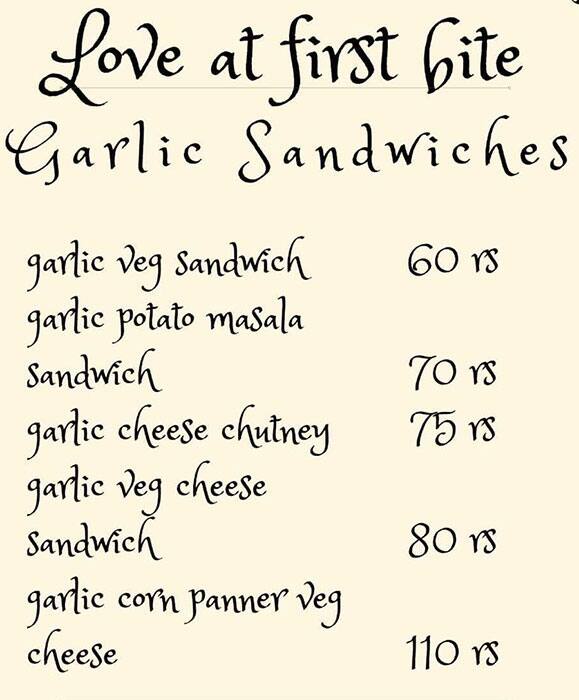 Love at first bite
Garlic Sandwiches
garlic veg sandwich 60 rs
garlic potato masala
sandwich 70 rs
garlic cheese chutney 75 rs
garlic veg cheese
sandwich 80 rs
garlic corn panner veg
cheese 110 rs